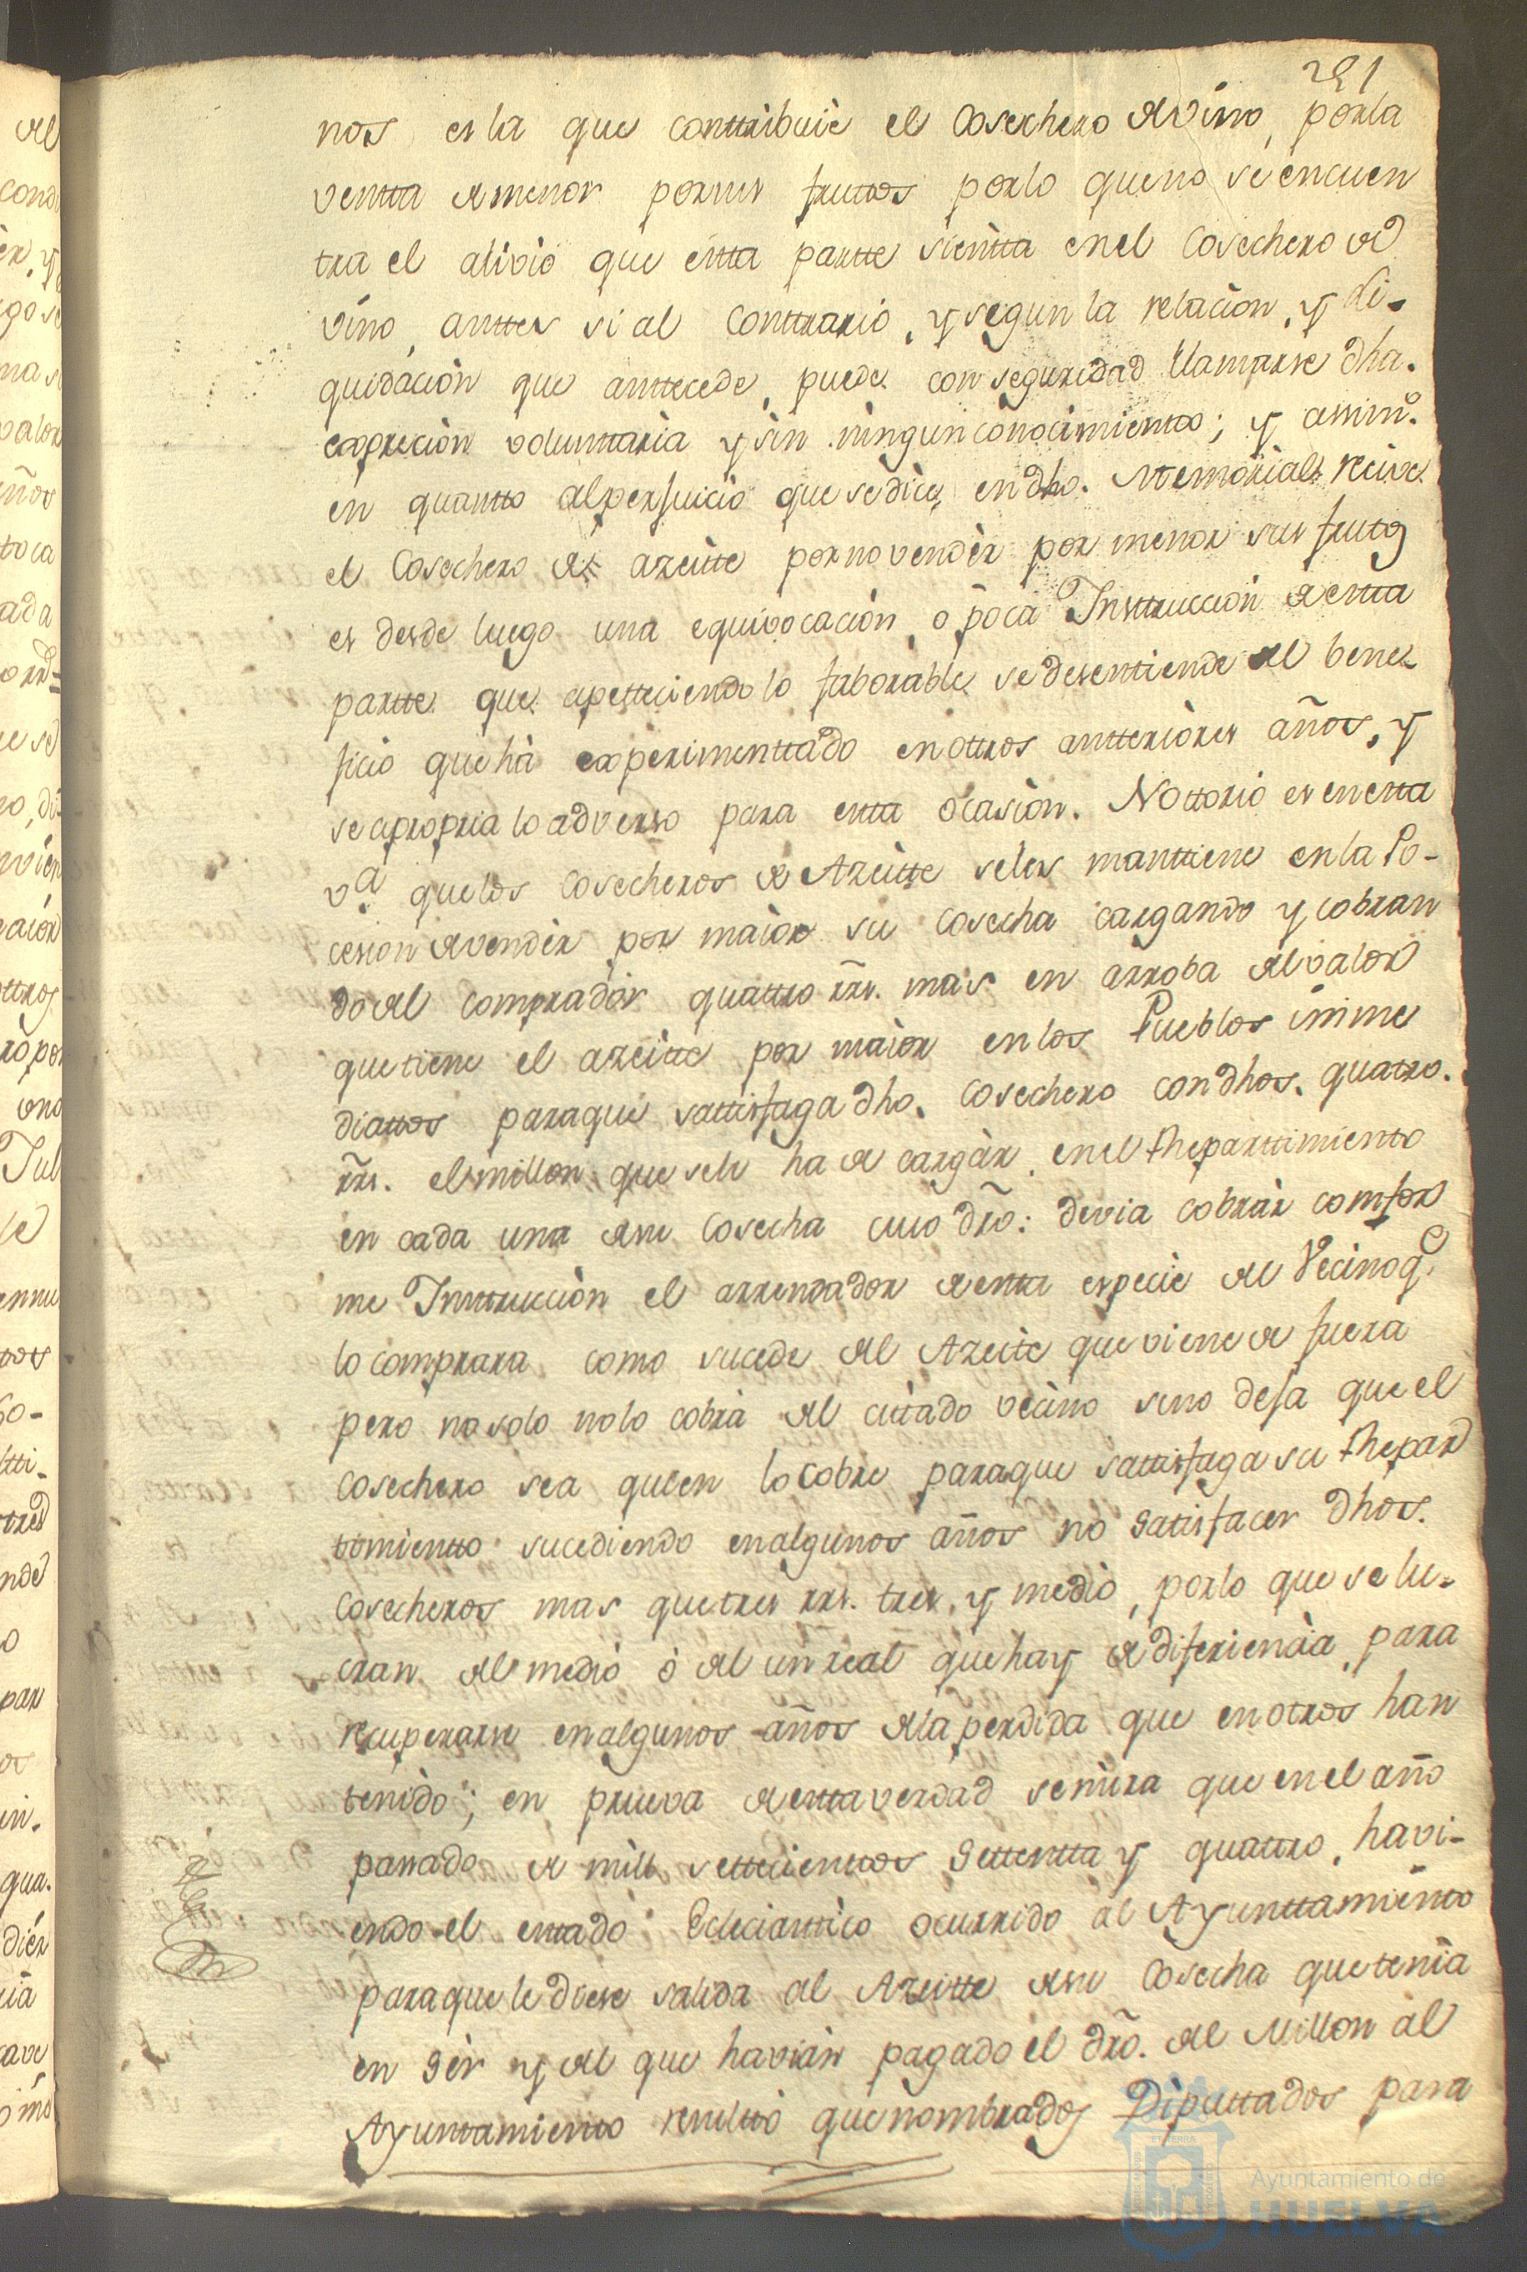 291
nos es la que conttribuie el Cosechero de vino, por la
ventta de menor por sus fruttos por lo que no se encuen
tra el alivio que estta partte sientta en el Cosechero de
vino, anttes si al Conttrario, y segun la relacion, y li-
quidacion que anttecede, puede con seguridad llamarse dha.
expresion volunttaria y sin ningun conocimientto; y assimo.
en quantto al perjuicio que se dice, en dho. Memorial, recive
el Cosechero de azeitte por no vender por menor sus frutos
es desde luego una equivocacion, o poca Insttruccion de estta
partte que apetteciendo lo faborable se desentiende del bene-
ficio que há experimenttado en ottros antteriores años, y
se apropria lo adverso para estta ocasion. Nottorio es en estta
va. que los Cosecheros de Azeitte se les manttiene en la Po-
cesion de vender por maior su Cosecha cargando y cobran
do del comprador quattro rrs. mas en arroba del valor
que tiene el azeitte por maior en los Pueblos inme
diattos para que sattisfaga dho. Cosechero con dhos. quatro.
rrs. el millon que se le ha de cargar en el Reparttimiento
en cada una de su Cosecha cuio dro: devia cobrar comfor
me Insttruccion el arrendador de estta especie del Vecino qe.
lo comprara como sucede del Azeite que viene de fuera
pero no solo no lo cobra del cittado vecino sino deja que el
Cosechero sea quien lo cobre para que sattisfaga su Repar
timientto sucediendo en algunos años no satisfacer dhos.
Cosecheros mas que tres rrs. tres, y medio, por lo que se lu-
cran del medio ó del un real que hay de diferiencia para
recuperarse en algunos años de la perdida que en otros han
tenido; en prueva de estta verdad se mira que en el año
passado de mill settecienttos settentta y quattro, havi-
endo el esttado Eclesiasttico ocurrido al Ayunttamiento
para que le diese salida al Azeitte de su Cosecha que tenia
en ser y del que havian pagado el dro. del Millon al
Ayuntamiento resulttó que nombrados Diputtados para
Ayuntamiento de
HUELVA